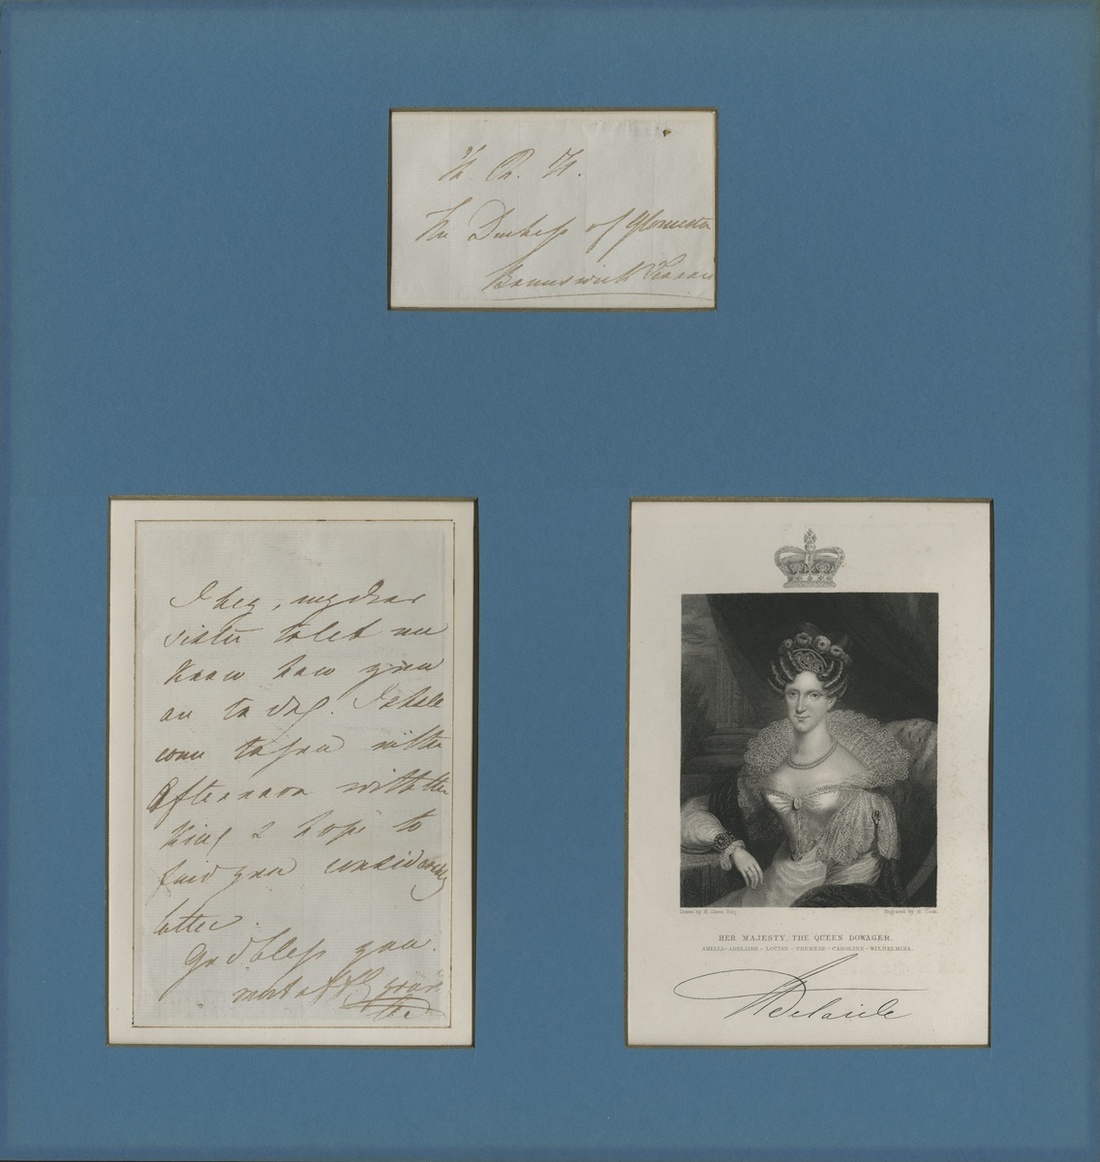 H. R. H.
The Duchess of Gloucester
Brunswick Terrace
I beg, my dear
sister to let me
know how you
are to day. I shall
come to you in the
Afternoon with the
King & hope to
find you considerably
better.
God bless you.
most affly yours
HER MAJESTY, THE QUEEN DOWAGER.
AMELIA - ADELAIDE - LOUISE - THERESE - CAROLINE - WILHELMINA.
Adelaide